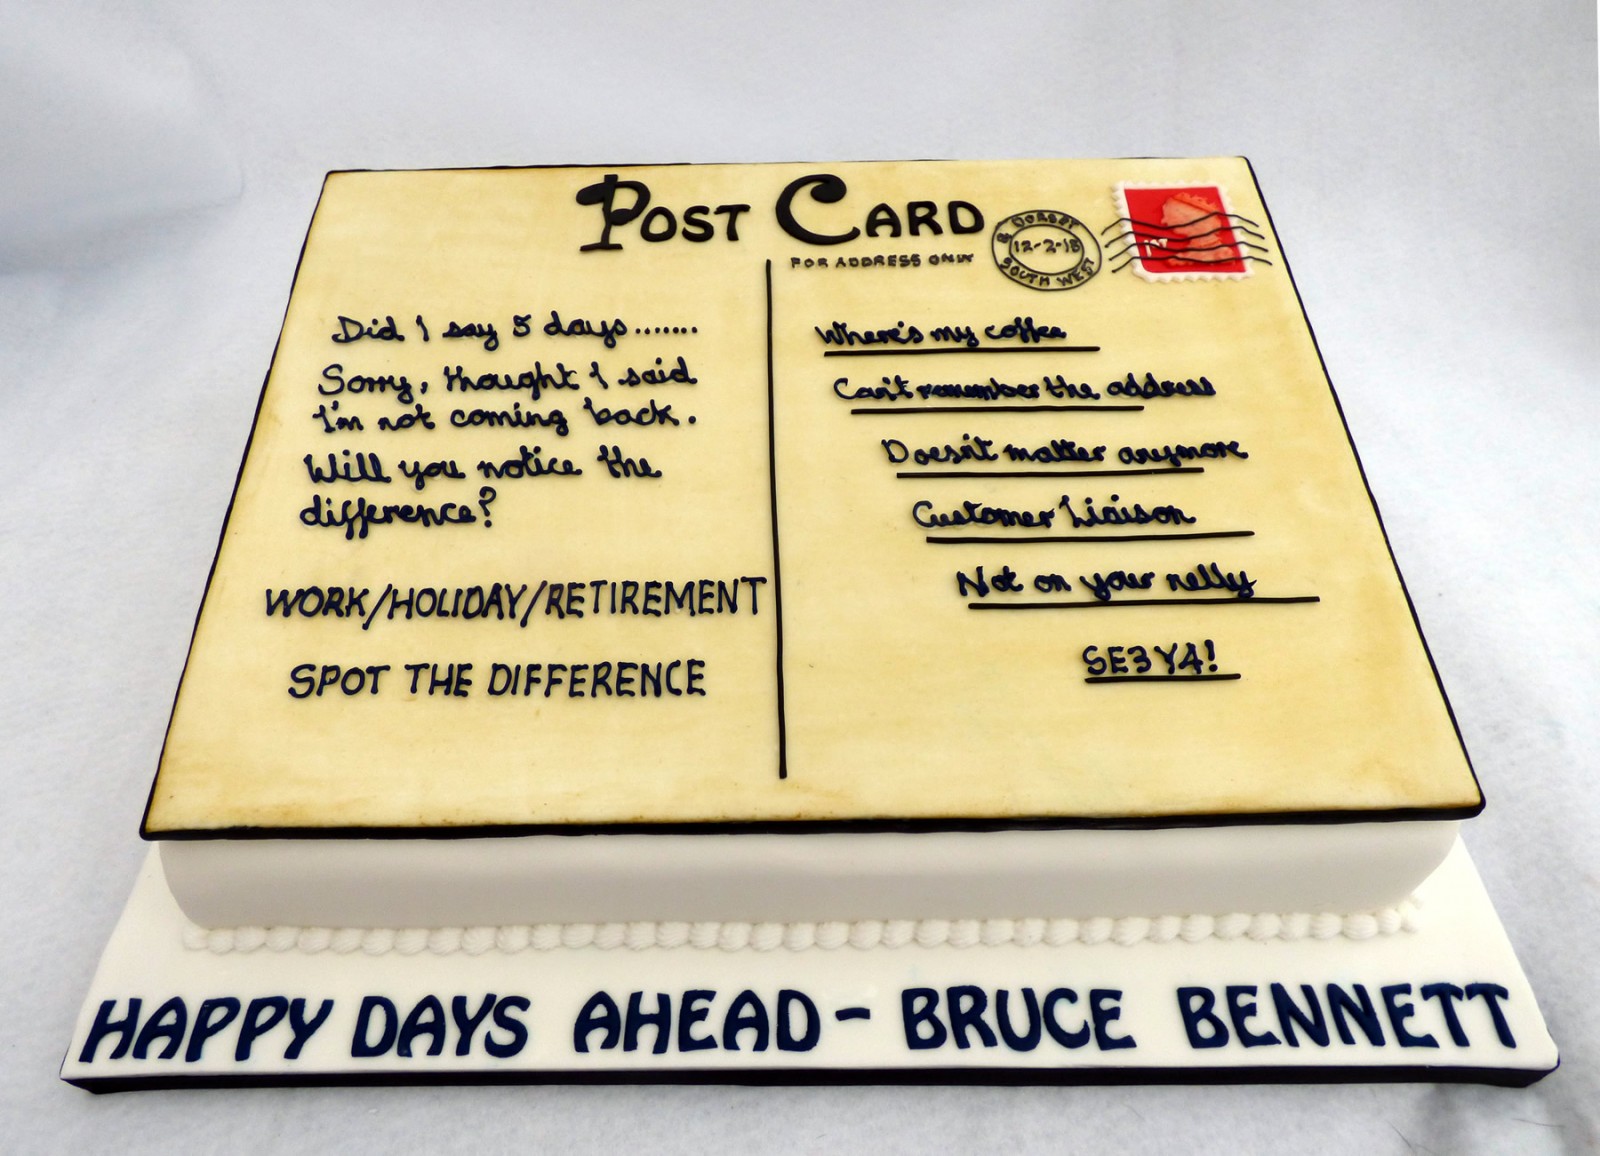 POST CARD
FOR ADDRESS ONLY
& DORSET
12-2-15
SOUTH WEST
1ST
Did I say 5 days.......
Sorry, thought I said
I'm not coming back.
Will you notice the
difference?
WORK/HOLIDAY/RETIREMENT
SPOT THE DIFFERENCE
Where's my coffee
Can't remember the address
Doesn't matter anymore
Customer Liaison
Not on your nelly
SE3 Y4!
HAPPY DAYS AHEAD - BRUCE BENNETT